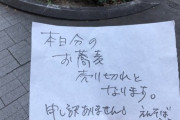 本日分の
お蕎麦
売り切れと
なります。
申し訳ありません!
えんそば